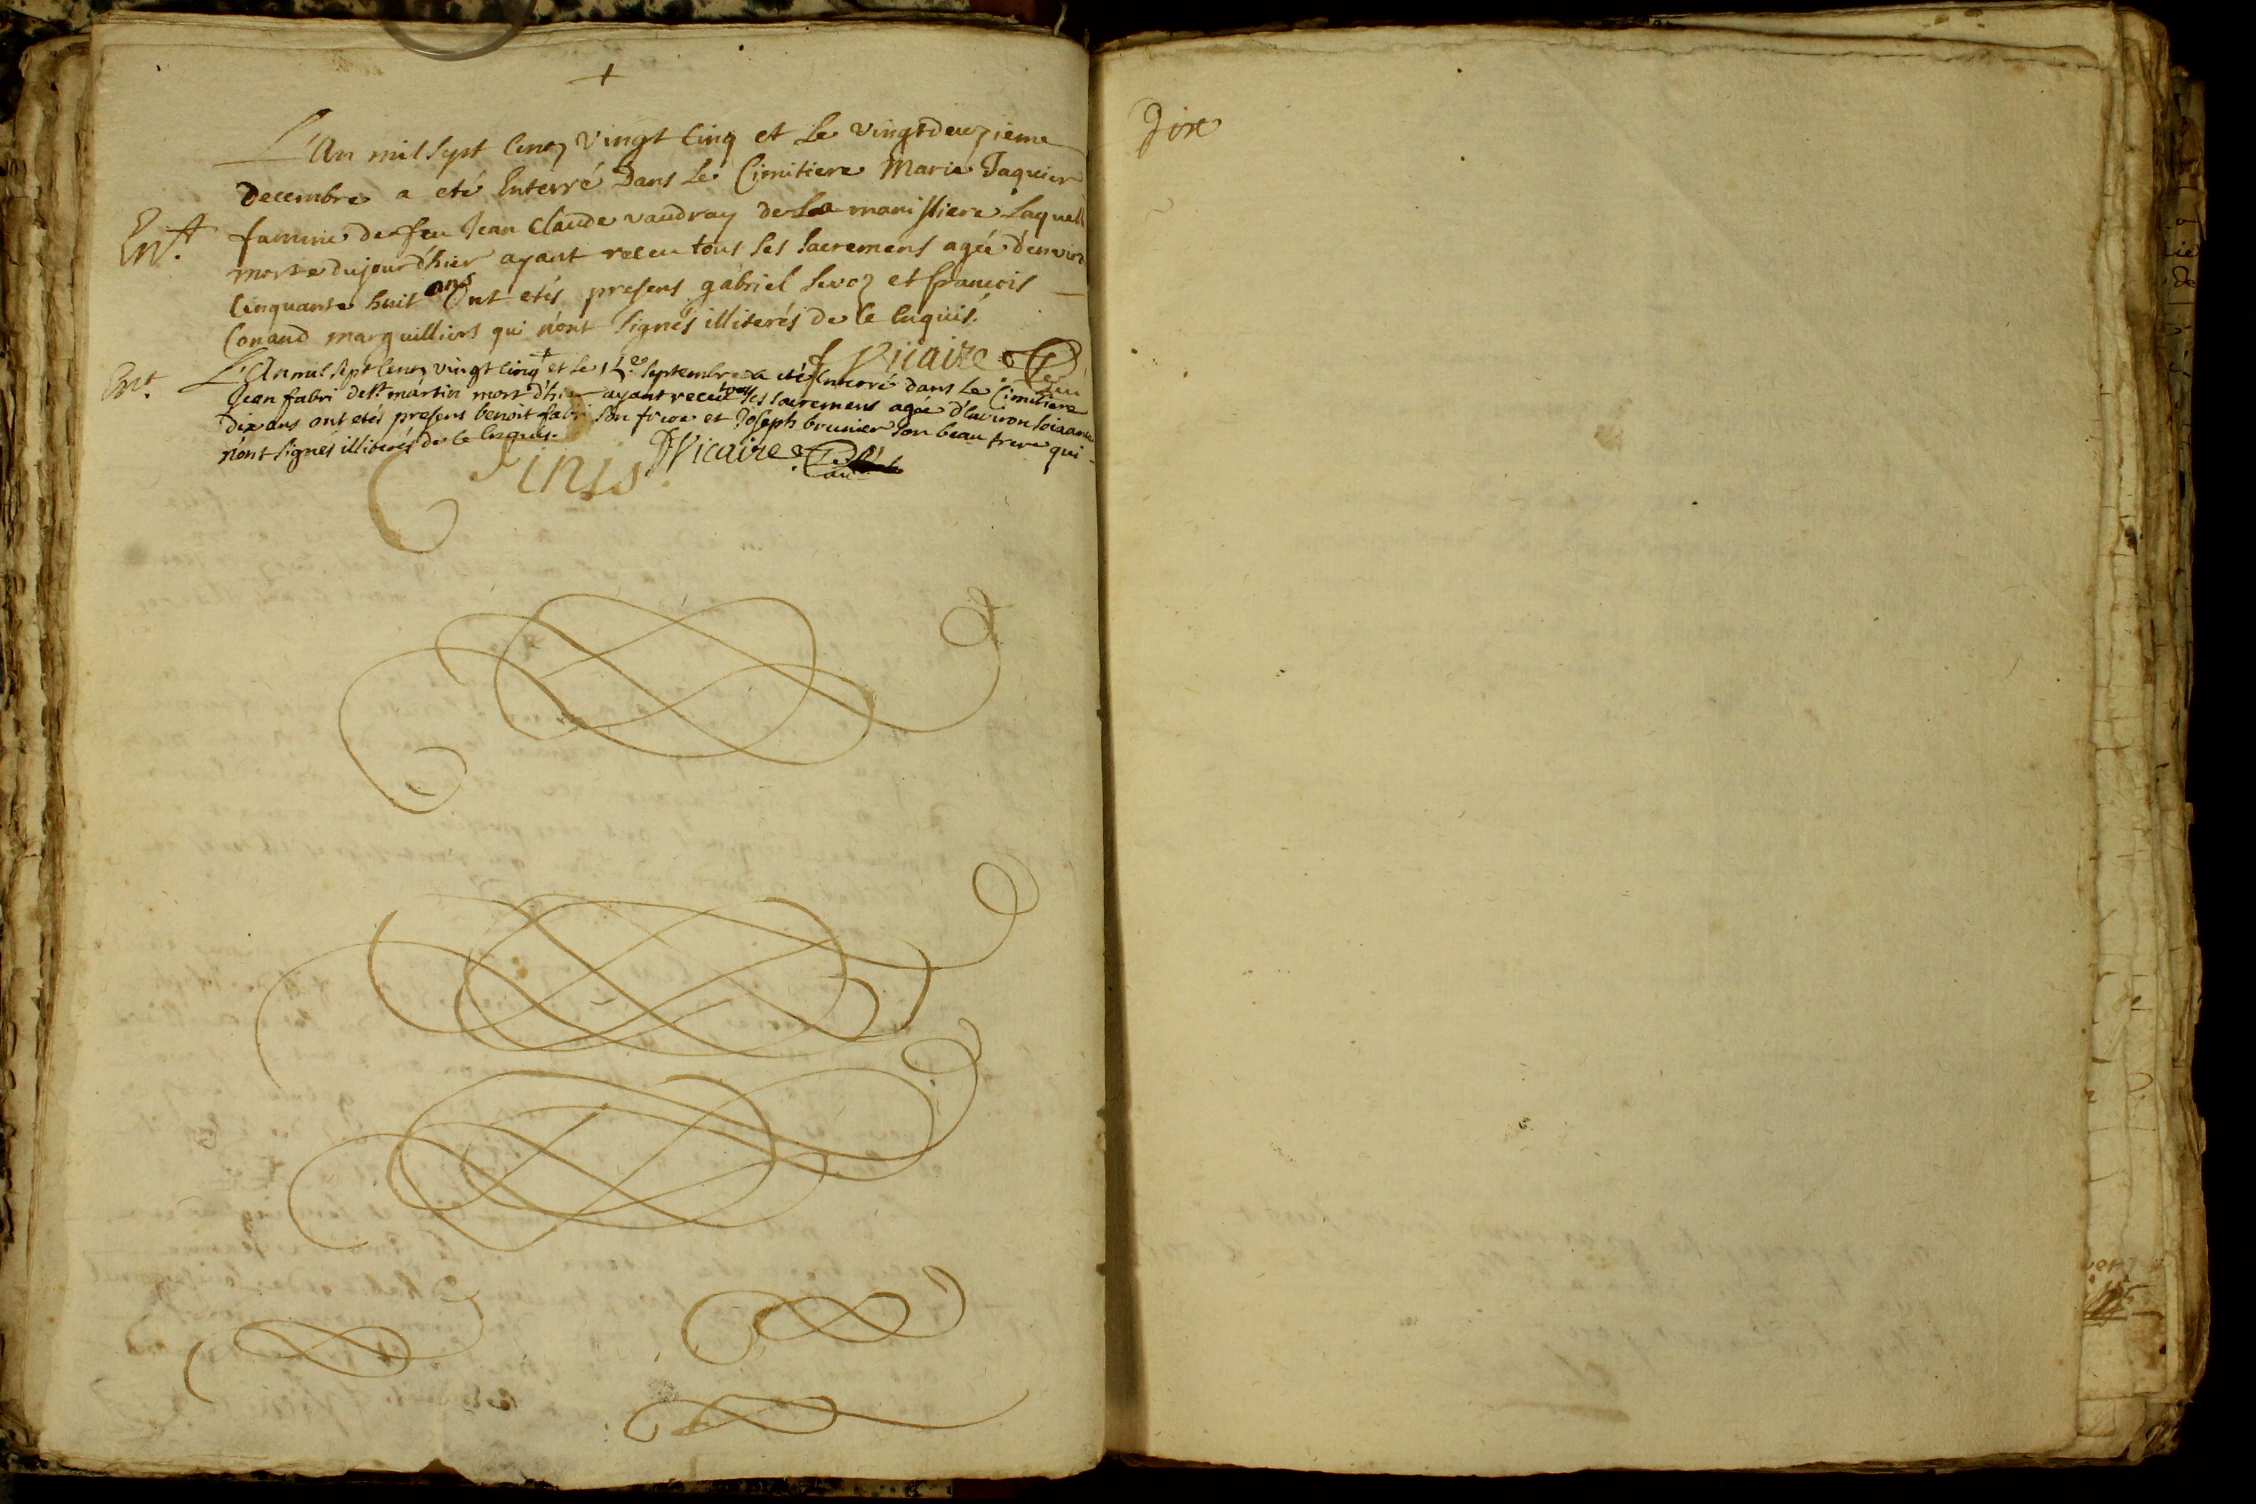 +
L'An mil sept cens vingt cinq et le vingtdeuzieme
decembre a eté enterré dans le Cimitiere Marie Jaquier
Ent. famme de feu Jean Claude vaudray de la
morte dujourd'hier ayant receu tous ses sacremens agée d'environ
cinquante huit ans ont etés presens gabriel et francois
Conand marguilliers qui n'ont signés illiterés de ce enquis.
Vicaire
Ent. L'An mil sept cens vingt cinq et le septembre a eté enterré dans le Cimitiere
Jean fabri de St martin mort d'hier ayant receu tous ses sacremens agée d'environ soixante
dix ans ont etés presens benoit fabri son frere et Joseph brunier son beau frere qui
n'ont signés illiterés de ce enquis.
Vicaire
Finis